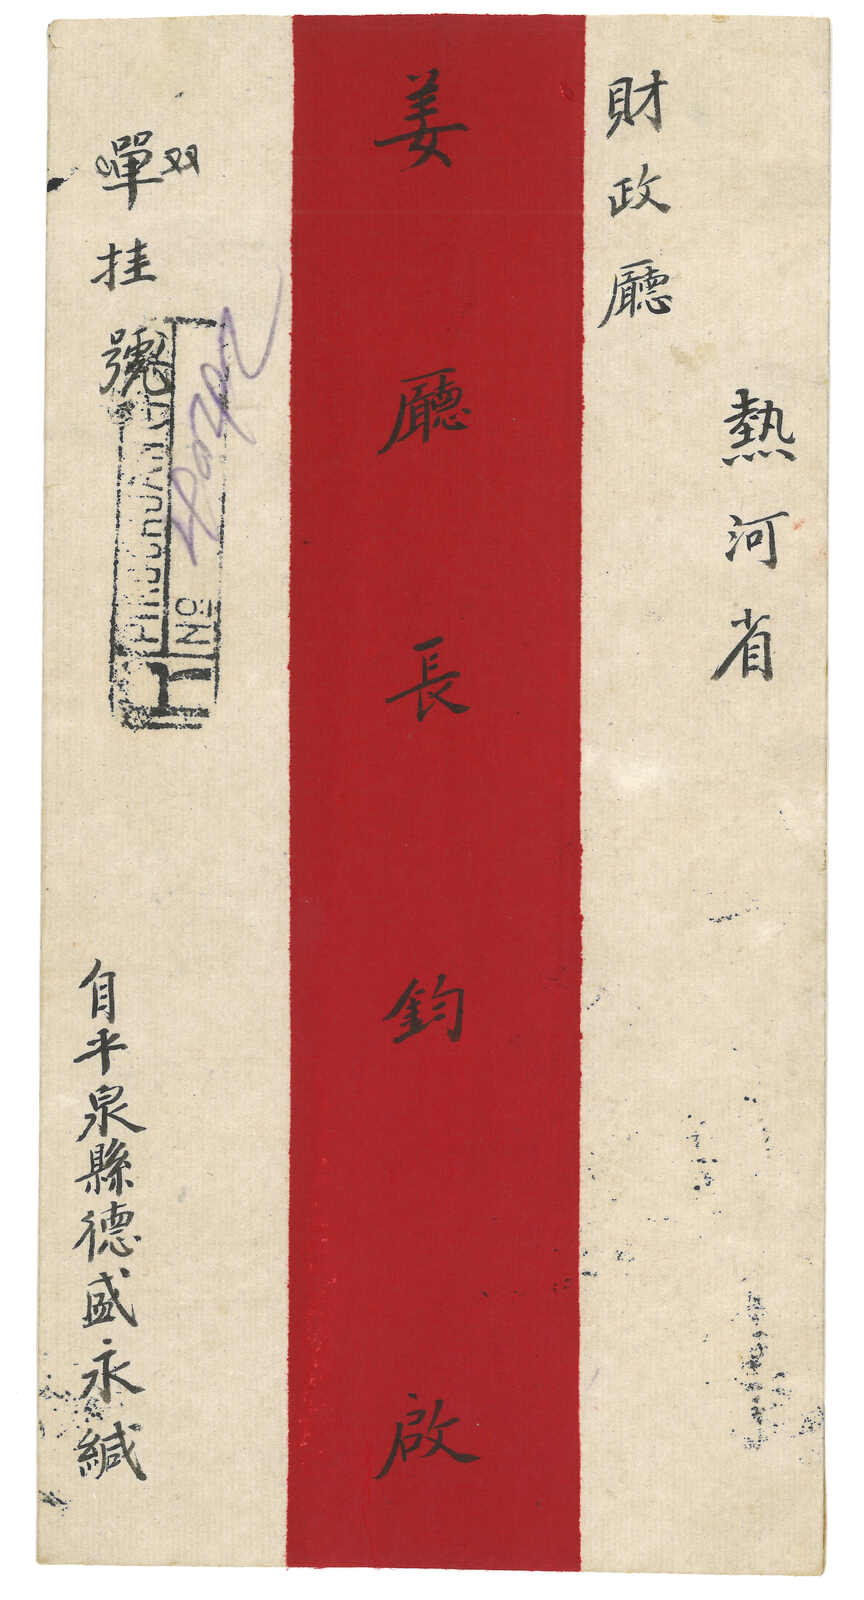 熱河省
財政廳
姜廳長鈞啟
双
單挂號
R
No
自平泉縣德盛永緘